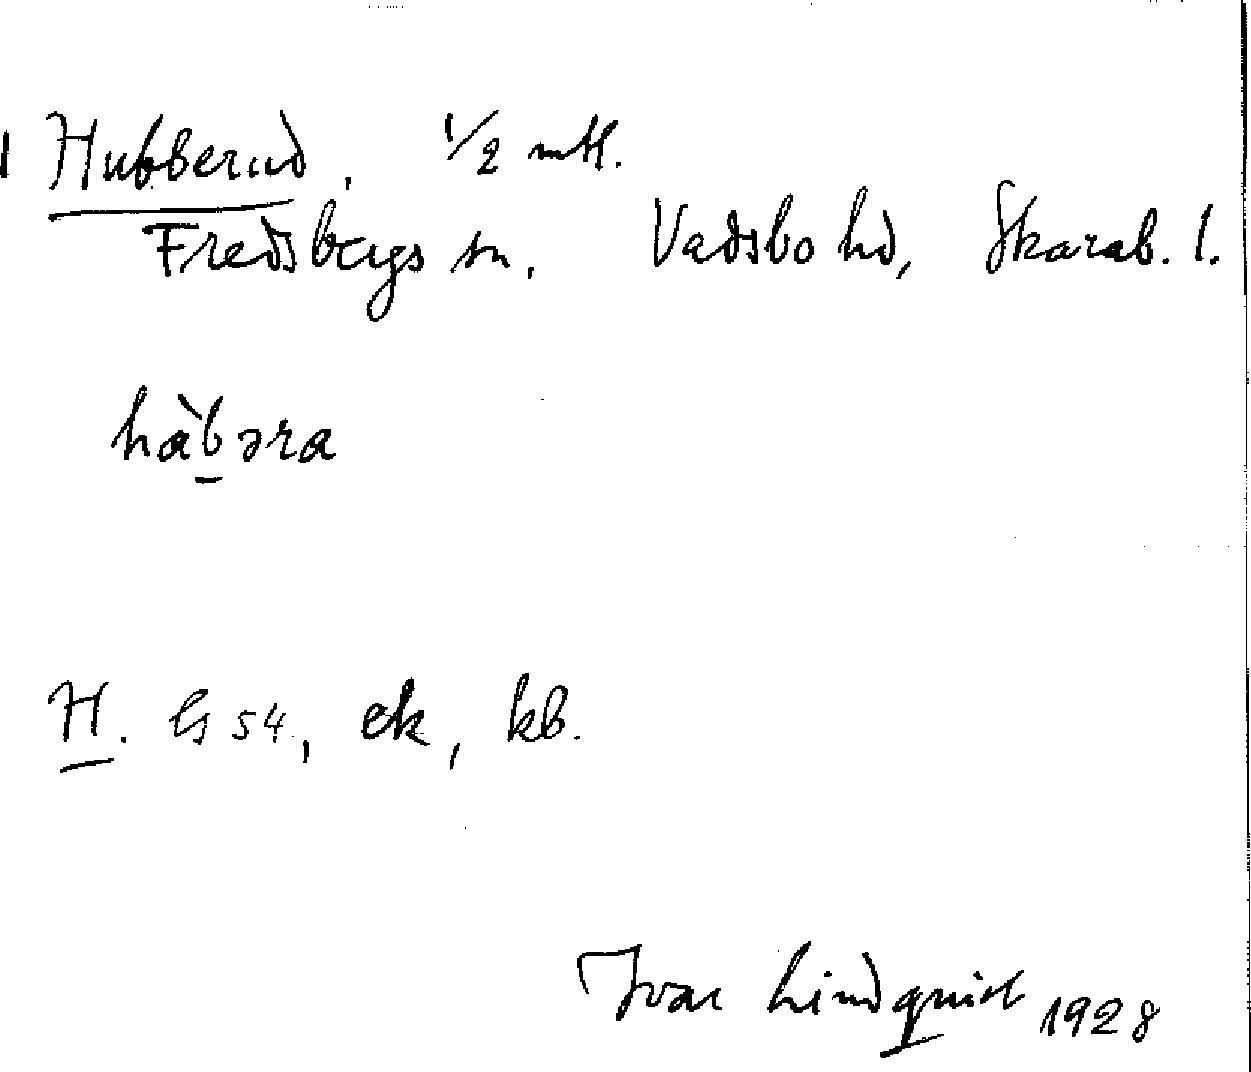 Hubberud, 1/2 mtl.
Fredsbergs sn, Vadsbo hd, Skarab. l.
hàb̲əra
H. GS 54, ek, kb.
Ivar Lindquist 1928